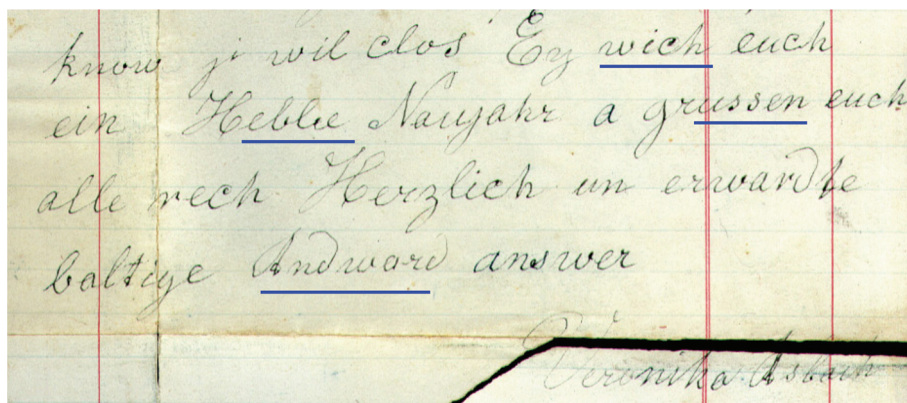 know ji wil clos Ey wich euch
ein Heblee Naujahr a grussen euch
alle rech Herzlich un erwardte
baltige Andward answer
Veronika Asbach